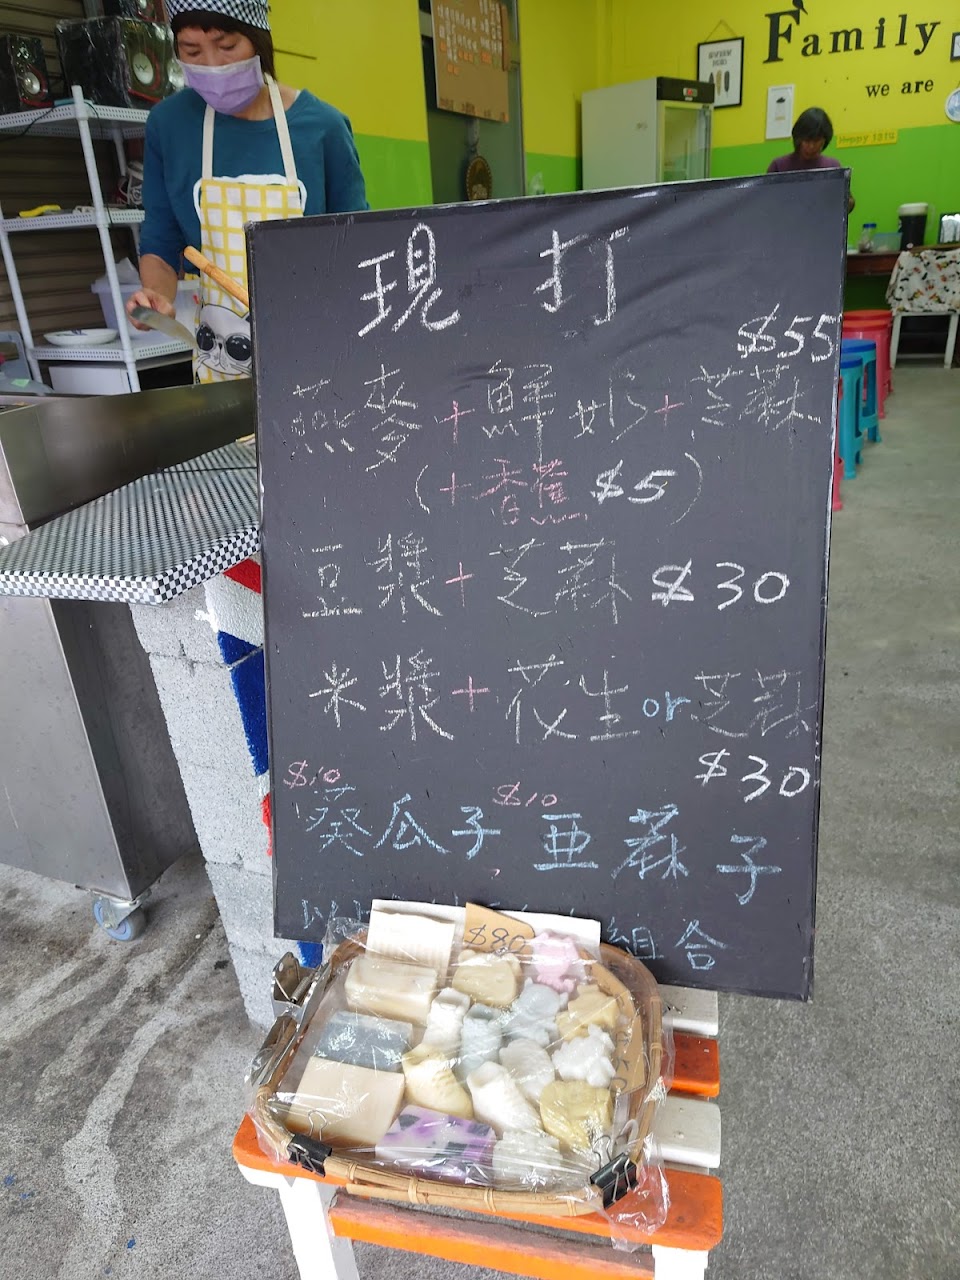 Family
we are
Happy
現打
$55
燕麥+鮮奶+芝蔴
(+香蕉 $5)
豆漿+芝蔴 $30
米漿+花生or芝蔴
$30
$10 $10
葵瓜子 亞蔴子
組合
$80